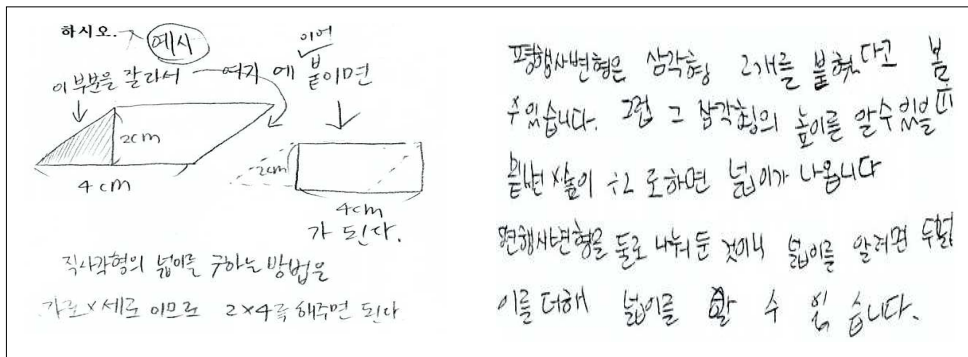 하시오.
예시
이 부분을 잘라서
여기 에
이어
붙이면
2cm
4cm
2cm
4cm
가 된다.
직사각형의 넓이를 구하는 방법은
가로×세로 이므로 2×4를 해주면 된다
평행사변형은 삼각형 2개를 붙혔다고 봄
수있습니다. 그럼 그 삼각형의 높이를 알수있을
밑변×높이 ÷2 로하면 넓이가 나옵니다
평행사변형을 둘로 나눠둔 것이니 넓이를 알려면 두
이를 더해 넓이를 할 수 있습니다.